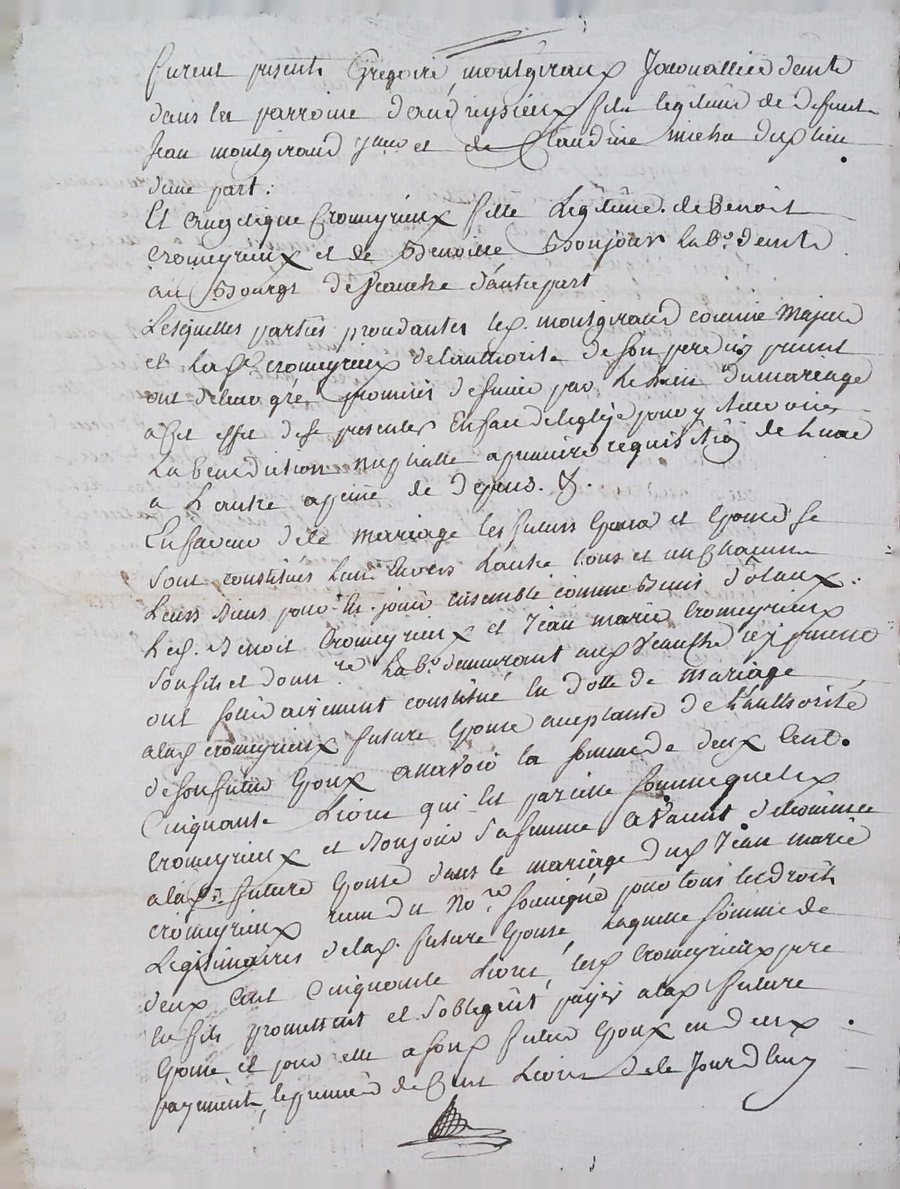 furent presents Gregoire montgiraux Journallier demt
dans la parroisse d'andreysieux fils legitime de defunt
Jean montgiraud et de Claudine micha dud lieu
d'une part.
Et Angelique Cromeyrieux fille Legitime de Benoit
Cromeyrieux et de Benoitte Bonjour lab.r demt
au Bourg de Veauche d'autre part
Lesquelles parties procedantes led. montgiraud comme Majeur
et lad. cromeyrieux de l'authorité de son pere icy present
ont de leur gré promis de s'unir par le lien du mariage
a cet effet de se presenter En face de leglise pour y recevoir
la benediction nuptialle a premiere requisition de l'une
a l'autre a peine de depens. &.
En faveur de ce mariage les futurs Epoux et Epouse se
sont constitués l'un Envers l'autre tous et un chacuns
leurs Biens pour en jouir ensemble comme Biens dotaux.
led. Benoit Cromeyrieux et Jean marie Cromeyrieux
son fils et donn.re lab.r demeurant aud Veauche icy present
ont solidairement constitué en dotte de mariage
a lad cromeyrieux future Epouse acceptante de l'authorité
de son futur Epoux a savoir la somme de deux Cent
Cinquante Livres qui est pareille somme que led
Cromeyrieux et Bonjour sa femme avaient destinnée
a lad. future Epouse dans le mariage dud Jean marie
cromeyrieux recu du No.re soussigné pour tous les droits
Legitimaires de lad. future Epouse, laquelle somme de
deux Cent Cinquante Livres, lesd Cromeyrieux pere
et fils promettent et s'obligent payer a lad future
Epouse et pour elle a sond futur Epoux en deux
payements, le premier de Cent Livres de ce Jourd'huy